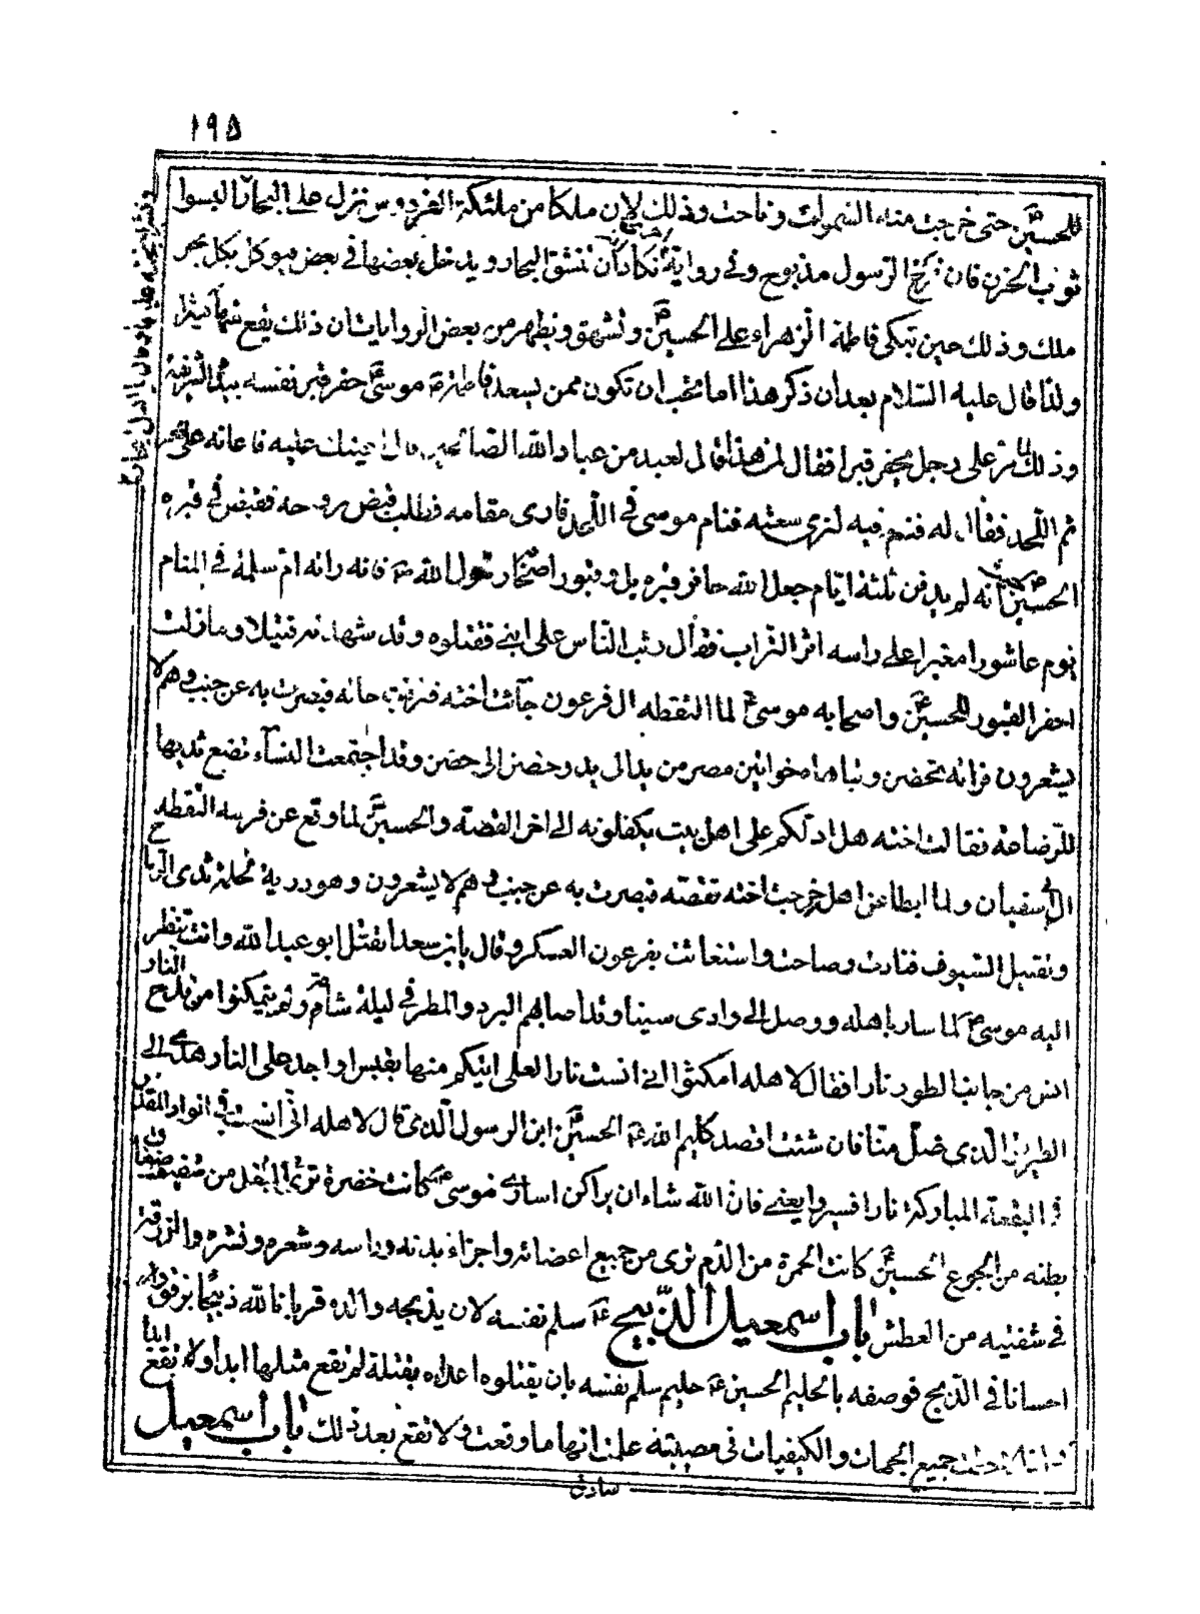 ١٩٥
للحسین حتی خرجت منه السموات وناحت وذلک لان ملکا من ملئکة الفردوس نزل علی البحار البسوا
ثوب الحزن فان فرخ الرسول مذبوح وفی روایة تکاد ان تنشق البحار ویدخل بعضها فی بعض فیوکل بکل بحر
ملک وذلک حین تبکی فاطمة الزهراء علی الحسین وتشهق ویظهر من بعض الروایات ان ذلک یقع کثیرا
ولذا قال علیه السلام بعد ان ذکر هذا اما تحب ان تکون ممن یسعد فاطمة موسی حفر قبر نفسه بیده الشریفة
وذلک لما مر علی رجل یحفر قبرا فقال لمن هذا قال لعبد من عباد الله الصالحین قال اعینک علیه فاعانه علی حفر
ثم اللحد فقال له فنم فیه لنری سعته فنام موسی فی اللحد فاری مقامه فطلب قبض روحه فقبض فی قبره
الحسین انه لم یدفن ثلثة ایام جعل الله حافر قبره بل وقبور اصحابه رسول الله فانه راته ام سلمة فی المنام
یوم عاشورا مغبرا علی راسه اثر التراب فقال وثب الناس علی ابنی فقتلوه وقد شهدته قتیلا وما زلت
احفر القبور للحسین واصحابه موسی لما التقطه ال فرعون جائت اخته فبصرت به عن جنب وهم لا
یشعرون فراته تحضن خواتین مصر من ید الی ید وحضن الی حضن وقد اجتمعت النسآء تضع ثدیها
للرضاعة فقالت اخته هل ادلکم علی اهل بیت یکفلونه الی اخر القصة والحسین لما وقع عن فرسه التقطه
ال ابی سفیان ولما ابطا عن اهله خرجت اخته تقصه فبصرت به عن جنب وهم لا یشعرون وهو
وتقبیل السیوف فنادت وصاحت واستغاثت بفرعون العسکر وقال یابن سعد ایقتل ابو عبد الله وانت تنظر
الیه موسی لما سار باهله ووصل الی وادی سینا وقد اصابهم البرد والمطر فی لیلة ولم یتمکنوا من قدح النار
انس من جانب الطور نارا فقال لاهله امکثوا انی انست نارا لعلی اتیکم منها بقبس او اجد علی النار هدی الی
الطریق الذی ضل منا فان شئت اقصد کلیم الله الحسین ابن الرسول الذی قال لاهله انی انست فی الواد المقدس
فی البقعة المبارکة نارا فسیروا یعنی فان الله شاء ان یراکن اساری موسی کانت خضرة تری البقل من صفیق صفاق
بطنه من الجوع الحسین کانت الحمرة من الدم تری من جمیع اعضائه واجزاء بدنه وراسه وشعره وبشره والزرقة
فی شفتیه من العطش باب اسمعیل الذبیح سلم نفسه لان یذبحه والده قربانا لله ذبیحا برفق
احسانا فی الذبح فوصفه بالحلیم الحسین حلیم سلم نفسه بان یقتلوه اعداه بقتلة لم یقع مثلها ابدا ولا تقع ابدا
جمیع الجهات والکیفیات فی مصیبته علمت انها ما وقعت ولا تقع بعد ذلک باب اسمعیل
صادق